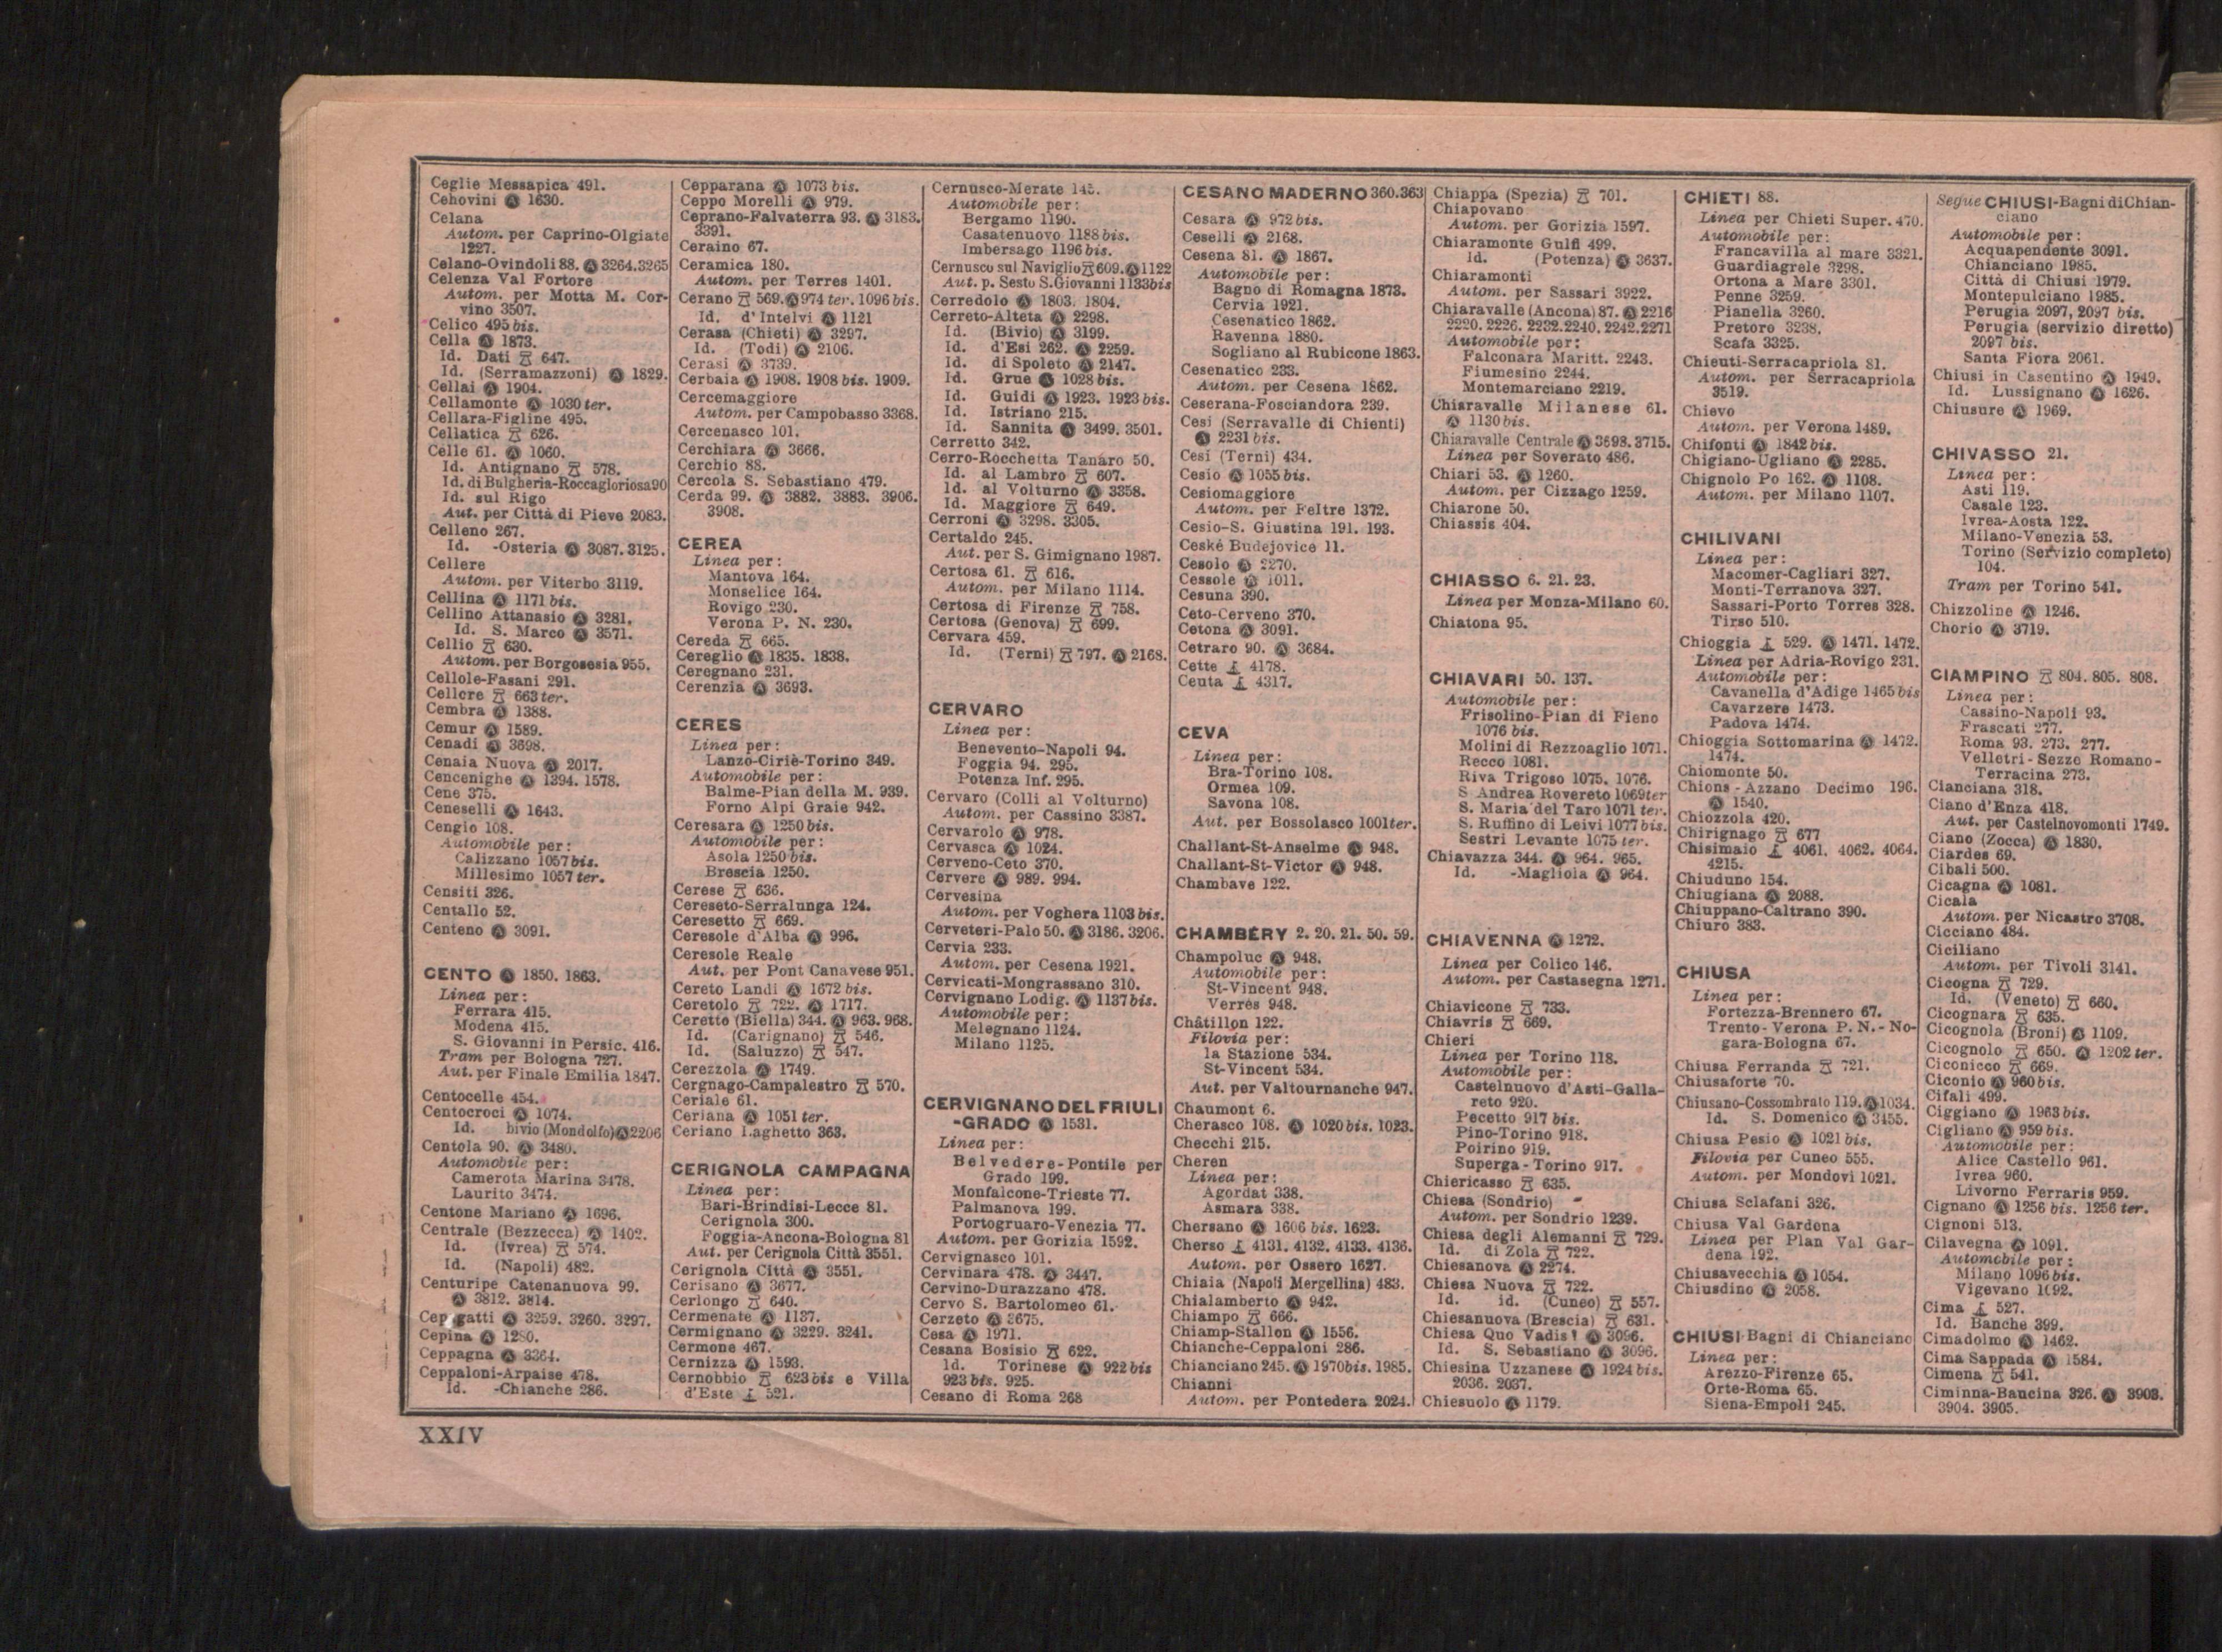 Ceglie Messapica 491.
Cehovini Ⓐ 1630.
Celana
Autom. per Caprino-Olgiate
1227.
Celano-Ovindoli 88. Ⓐ 3264.3265
Celenza Val Fortore
Autom. per Motta M. Cor-
vino 3507.
Celico 495 bis.
Cella Ⓐ 1873.
Id. Dati 647.
Id. (Serramazzoni) Ⓐ 1829.
Cellai Ⓐ 1904.
Cellamonte Ⓐ 1030 ter.
Cellara-Figline 495.
Cellatica 626.
Celle 61. Ⓐ 1060.
Id. Antignano 578.
Id. di Bulgheria-Roccagloriosa 90
Id. sul Rigo
Aut. per Città di Pieve 2083.
Celleno 267.
Id. -Osteria Ⓐ 3087. 3125.
Cellere
Autom. per Viterbo 3119.
Cellina Ⓐ 1171 bis.
Cellino Attanasio Ⓐ 3281.
Id. S. Marco Ⓐ 3571.
Cellio 630.
Autom. per Borgosesia 955.
Cellole-Fasani 291.
Cellore 663 ter.
Cembra Ⓐ 1388.
Cemur Ⓐ 1589.
Cenadi Ⓐ 3698.
Cenaia Nuova Ⓐ 2017.
Cencenighe Ⓐ 1394. 1578.
Cene 375.
Ceneselli Ⓐ 1643.
Cengio 108.
Automobile per:
Calizzano 1057 bis.
Millesimo 1057 ter.
Censiti 326.
Centallo 52.
Centeno Ⓐ 3091.
CENTO Ⓐ 1850. 1863.
Linea per:
Ferrara 415.
Modena 415.
S. Giovanni in Persic. 416.
Tram per Bologna 727.
Aut. per Finale Emilia 1847.
Centocelle 454.
Centocroci Ⓐ 1074.
Id. bivio (Mondolfo) Ⓐ 2206
Centola 90. Ⓐ 3480.
Automobile per:
Camerota Marina 3478.
Laurito 3474.
Centone Mariano Ⓐ 1696.
Centrale (Bezzecca) Ⓐ 1402.
Id. (Ivrea) 574.
Id. (Napoli) 482.
Centuripe Catenanuova 99.
Ⓐ 3812. 3814.
Cepagatti Ⓐ 3259. 3260. 3297.
Cepina Ⓐ 1280.
Ceppagna Ⓐ 3364.
Ceppaloni-Arpaise 478.
Id. -Chianche 286.
Cepparana Ⓐ 1073 bis.
Ceppo Morelli Ⓐ 979.
Ceprano-Falvaterra 93. Ⓐ 3183.
3391.
Ceraino 67.
Ceramica 180.
Autom. per Terres 1401.
Cerano 569. Ⓐ 974 ter. 1096 bis.
Id. d'Intelvi Ⓐ 1121
Cerasa (Chieti) Ⓐ 3297.
Id. (Todi) Ⓐ 2106.
Cerasi Ⓐ 3739.
Cerbaia Ⓐ 1908. 1908 bis. 1909.
Cercemaggiore
Autom. per Campobasso 3368.
Cercenasco 101.
Cerchiara Ⓐ 3666.
Cerchio 88.
Cercola S. Sebastiano 479.
Cerda 99. Ⓐ 3882. 3883. 3906.
3908.
CEREA
Linea per:
Mantova 164.
Monselice 164.
Rovigo 230.
Verona P. N. 230.
Cereda 665.
Cereglio Ⓐ 1835. 1838.
Ceregnano 231.
Cerenzia Ⓐ 3693.
CERES
Linea per:
Lanzo-Ciriè-Torino 349.
Automobile per:
Balme-Pian della M. 939.
Forno Alpi Graie 942.
Ceresara Ⓐ 1250 bis.
Automobile per:
Asola 1250 bis.
Brescia 1250.
Cerese 636.
Cereseto-Serralunga 124.
Ceresetto 669.
Ceresole d'Alba Ⓐ 996.
Ceresole Reale
Aut. per Pont Canavese 951.
Cereto Landi Ⓐ 1672 bis.
Ceretolo 722. Ⓐ 1717.
Ceretto (Biella) 344. Ⓐ 963. 968.
Id. (Carignano) 546.
Id. (Saluzzo) 547.
Cerezzola Ⓐ 1749.
Cergnago-Campalestro 570.
Ceriale 61.
Ceriana Ⓐ 1051 ter.
Ceriano Laghetto 363.
CERIGNOLA CAMPAGNA
Linea per:
Bari-Brindisi-Lecce 81.
Cerignola 300.
Foggia-Ancona-Bologna 81
Aut. per Cerignola Città 3551.
Cerignola Città Ⓐ 3551.
Cerisano Ⓐ 3677.
Cerlongo 640.
Cermenate Ⓐ 1137.
Cermignano Ⓐ 3229. 3241.
Cermone 467.
Cernizza Ⓐ 1593.
Cernobbio 623 bis e Villa
d'Este 521.
Cernusco-Merate 145.
Automobile per:
Bergamo 1190.
Casatenuovo 1188 bis.
Imbersago 1196 bis.
Cernusco sul Naviglio 609. Ⓐ 1122
Aut. p. Sesto S. Giovanni 1133 bis
Cerredolo Ⓐ 1803. 1804.
Cerreto-Alteta Ⓐ 2298.
Id. (Bivio) Ⓐ 3199.
Id. d'Esi 262. Ⓐ 2259.
Id. di Spoleto Ⓐ 2147.
Id. Grue Ⓐ 1028 bis.
Id. Guidi Ⓐ 1923. 1923 bis.
Id. Istriano 215.
Id. Sannita Ⓐ 3499. 3501.
Cerretto 342.
Cerro-Rocchetta Tanaro 50.
Id. al Lambro 607.
Id. al Volturno Ⓐ 3358.
Id. Maggiore 649.
Cerroni Ⓐ 3298. 3305.
Certaldo 245.
Aut. per S. Gimignano 1987.
Certosa 61. 616.
Autom. per Milano 1114.
Certosa di Firenze 758.
Certosa (Genova) 699.
Cervara 459.
Id. (Terni) 797. Ⓐ 2168.
CERVARO
Linea per:
Benevento-Napoli 94.
Foggia 94. 295.
Potenza Inf. 295.
Cervaro (Colli al Volturno)
Autom. per Cassino 3387.
Cervarolo Ⓐ 978.
Cervasca Ⓐ 1024.
Cerveno-Ceto 370.
Cervere Ⓐ 989. 994.
Cervesina
Autom. per Voghera 1103 bis.
Cerveteri-Palo 50. Ⓐ 3186. 3206.
Cervia 233.
Autom. per Cesena 1921.
Cervicati-Mongrassano 310.
Cervignano Lodig. Ⓐ 1137 bis.
Automobile per:
Melegnano 1124.
Milano 1125.
CERVIGNANO DEL FRIULI
-GRADO Ⓐ 1531.
Linea per:
Belvedere-Pontile per
Grado 199.
Monfalcone-Trieste 77.
Palmanova 199.
Portogruaro-Venezia 77.
Autom. per Gorizia 1592.
Cervignasco 101.
Cervinara 478. Ⓐ 3447.
Cervino-Durazzano 478.
Cervo S. Bartolomeo 61.
Cerzeto Ⓐ 3675.
Cesa Ⓐ 1971.
Cesana Bosisio 622.
Id. Torinese Ⓐ 922 bis
923 bis. 925.
Cesano di Roma 268
CESANO MADERNO 360.363
Cesara Ⓐ 972 bis.
Ceselli Ⓐ 2168.
Cesena 81. Ⓐ 1867.
Automobile per:
Bagno di Romagna 1873.
Cervia 1921.
Cesenatico 1862.
Ravenna 1880.
Sogliano al Rubicone 1863.
Cesenatico 233.
Autom. per Cesena 1862.
Ceserana-Fosciandora 239.
Cesi (Serravalle di Chienti)
Ⓐ 2231 bis.
Cesi (Terni) 434.
Cesio Ⓐ 1055 bis.
Cesiomaggiore
Autom. per Feltre 1372.
Cesio-S. Giustina 191. 193.
Ceskè Budejovice 11.
Cesolo Ⓐ 2270.
Cessole Ⓐ 1011.
Cesuna 390.
Ceto-Cerveno 370.
Cetona Ⓐ 3091.
Cetraro 90. Ⓐ 3684.
Cette 4178.
Ceuta 4317.
CEVA
Linea per:
Bra-Torino 108.
Ormea 109.
Savona 108.
Aut. per Bossolasco 1001 ter.
Challant-St-Anselme Ⓐ 948.
Challant-St-Victor Ⓐ 948.
Chambave 122.
CHAMBÉRY 2. 20. 21. 50. 59.
Champoluc Ⓐ 948.
Automobile per:
St-Vincent 948.
Verrès 948.
Châtillon 122.
Filovia per:
la Stazione 534.
St-Vincent 534.
Aut. per Valtournanche 947.
Chaumont 6.
Cherasco 108. Ⓐ 1020 bis. 1023.
Checchi 215.
Cheren
Linea per:
Agordat 338.
Asmara 338.
Chersano Ⓐ 1606 bis. 1623.
Cherso 4131. 4132. 4133. 4136.
Autom. per Ossero 1627.
Chiaia (Napoli Mergellina) 483.
Chialamberto Ⓐ 942.
Chiampo 666.
Chiamp-Stallon Ⓐ 1556.
Chianche-Ceppaloni 286.
Chianciano 245. Ⓐ 1970 bis. 1985.
Chianni
Autom. per Pontedera 2024.
Chiappa (Spezia) 701.
Chiapovano
Autom. per Gorizia 1597.
Chiaramonte Gulfi 499.
Id. (Potenza) Ⓐ 3637.
Chiaramonti
Autom. per Sassari 3922.
Chiaravalle (Ancona) 87. Ⓐ 2216
2220. 2226. 2232. 2240. 2242. 2271
Automobile per:
Falconara Maritt. 2243.
Fiumesino 2244.
Montemarciano 2219.
Chiaravalle Milanese 61.
Ⓐ 1130 bis.
Chiaravalle Centrale Ⓐ 3698. 3715.
Linea per Soverato 486.
Chiari 53. Ⓐ 1260.
Autom. per Cizzago 1259.
Chiarone 50.
Chiassis 404.
CHIASSO 6. 21. 23.
Linea per Monza-Milano 60.
Chiatona 95.
CHIAVARI 50. 137.
Automobile per:
Frisolino-Pian di Fieno
1076 bis.
Molini di Rezzoaglio 1071.
Recco 1081.
Riva Trigoso 1075. 1076.
S Andrea Rovereto 1069 ter
S. Maria del Taro 1071 ter.
S. Ruffino di Leivi 1077 bis.
Sestri Levante 1075 ter.
Chiavazza 344. Ⓐ 964. 965.
Id. -Magliola Ⓐ 964.
CHIAVENNA Ⓐ 1272.
Linea per Colico 146.
Autom. per Castasegna 1271.
Chiavicone 733.
Chiavris 669.
Chieri
Linea per Torino 118.
Automobile per:
Castelnuovo d'Asti-Galla-
reto 920.
Pecetto 917 bis.
Pino-Torino 918.
Poirino 919.
Superga-Torino 917.
Chiericasso 635.
Chiesa (Sondrio)
Autom. per Sondrio 1239.
Chiesa degli Alemanni 729.
Id. di Zola 722.
Chiesanova Ⓐ 2274.
Chiesa Nuova 722.
Id. id. (Cuneo) 557.
Chiesanuova (Brescia) 631.
Chiesa Quo Vadis! Ⓐ 3096.
Id. S. Sebastiano Ⓐ 3096.
Chiesina Uzzanese Ⓐ 1924 bis.
2036. 2037.
Chiesuolo Ⓐ 1179.
CHIETI 88.
Linea per Chieti Super. 470.
Automobile per:
Francavilla al mare 3321.
Guardiagrele 3298.
Ortona a Mare 3301.
Penne 3259.
Pianella 3260.
Pretoro 3238.
Scafa 3325.
Chieuti-Serracapriola 81.
Autom. per Serracapriola
3519.
Chievo
Autom. per Verona 1489.
Chifonti Ⓐ 1842 bis.
Chigiano-Ugliano Ⓐ 2285.
Chignolo Po 162. Ⓐ 1108.
Autom. per Milano 1107.
CHILIVANI
Linea per:
Macomer-Cagliari 327.
Monti-Terranova 327.
Sassari-Porto Torres 328.
Tirso 510.
Chioggia 529. Ⓐ 1471. 1472.
Linea per Adria-Rovigo 231.
Automobile per:
Cavanella d'Adige 1465 bis
Cavarzere 1473.
Padova 1474.
Chioggia Sottomarina Ⓐ 1472.
1474.
Chiomonte 50.
Chions-Azzano Decimo 196.
Ⓐ 1540.
Chiozzola 420.
Chirignago 677
Chisimaio 4061. 4062. 4064.
4215.
Chiuduno 154.
Chiugiana Ⓐ 2088.
Chiuppano-Caltrano 390.
Chiuro 383.
CHIUSA
Linea per:
Fortezza-Brennero 67.
Trento-Verona P. N.-No-
gara-Bologna 67.
Chiusa Ferranda 721.
Chiusaforte 70.
Chiusano-Cossombrato 119. Ⓐ 1034.
Id. S. Domenico Ⓐ 3455.
Chiusa Pesio Ⓐ 1021 bis.
Filovia per Cuneo 555.
Autom. per Mondovì 1021.
Chiusa Sclafani 326.
Chiusa Val Gardena
Linea per Plan Val Gar-
dena 192.
Chiusavecchia Ⓐ 1054.
Chiusdino Ⓐ 2058.
CHIUSI Bagni di Chianciano
Linea per:
Arezzo-Firenze 65.
Orte-Roma 65.
Siena-Empoli 245.
Segue CHIUSI-Bagni di Chian-
ciano
Automobile per:
Acquapendente 3091.
Chianciano 1985.
Città di Chiusi 1979.
Montepulciano 1985.
Perugia 2097, 2097 bis.
Perugia (servizio diretto)
2097 bis.
Santa Fiora 2061.
Chiusi in Casentino Ⓐ 1949.
Id. Lussignano Ⓐ 1626.
Chiusure Ⓐ 1969.
CHIVASSO 21.
Linea per:
Asti 119.
Casale 123.
Ivrea-Aosta 122.
Milano-Venezia 53.
Torino (Servizio completo)
104.
Tram per Torino 541.
Chizzoline Ⓐ 1246.
Chorio Ⓐ 3719.
CIAMPINO 804. 805. 808.
Linea per:
Cassino-Napoli 93.
Frascati 277.
Roma 93. 273. 277.
Velletri-Sezze Romano-
Terracina 273.
Cianciana 318.
Ciano d'Enza 418.
Aut. per Castelnovomonti 1749.
Ciano (Zocca) Ⓐ 1830.
Ciardes 69.
Cibali 500.
Cicagna Ⓐ 1081.
Cicala
Autom. per Nicastro 3708.
Cicciano 484.
Ciciliano
Autom. per Tivoli 3141.
Cicogna 729.
Id. (Veneto) 660.
Cicognara 635.
Cicognola (Broni) Ⓐ 1109.
Cicognolo 650. Ⓐ 1202 ter.
Ciconicco 669.
Ciconio Ⓐ 960 bis.
Cifali 499.
Ciggiano Ⓐ 1963 bis.
Cigliano Ⓐ 959 bis.
Automobile per:
Alice Castello 961.
Ivrea 960.
Livorno Ferraris 959.
Cignano Ⓐ 1256 bis. 1256 ter.
Cignoni 513.
Cilavegna Ⓐ 1091.
Automobile per:
Milano 1096 bis.
Vigevano 1092.
Cima 527.
Id. Banche 399.
Cimadolmo Ⓐ 1462.
Cima Sappada Ⓐ 1584.
Cimena 541.
Ciminna-Baucina 326. Ⓐ 3903.
3904. 3905.
XXIV